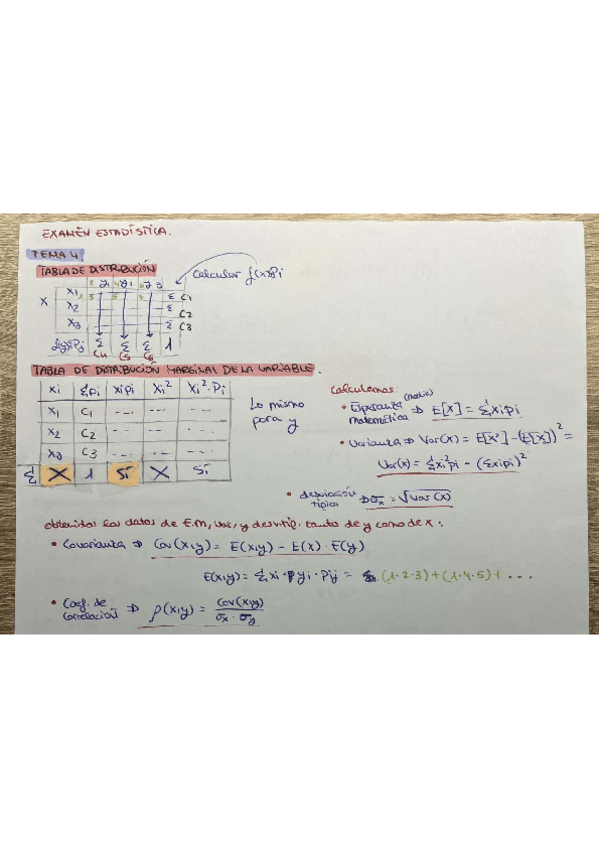 EXAMEN ESTADÍSTICA.
TEMA 4
TABLA DE DISTRIBUCIÓN
Calcular f(x)Pi
X
x1 Σ C1
x2 Σ C2
x3 Σ C3
Σ Σ Σ 1
C4 C5 C6
TABLA DE DISTRIBUCIÓN MARGINAL DE LA VARIABLE.
xi ΣPi xiPi xi² xi²·Pi
x1 C1 --- --- ---
x2 C2 --- --- ---
x3 C3 --- --- ---
Σ X 1 SÍ X SÍ
Lo mismo
para y
Calculamos:
• Esperanza (media)
matemática ⇒ E[X] = Σxipi
• Varianza ⇒ Var(x) = E[X²] - (E[X])² =
Var(x) = Σxi²pi - (Σxipi)²
• desviación
típica ⇒ σx = √Var(x)
obtenidos los datos de E.m, var, y desv.tip. tanto de y como de x:
• Covarianza ⇒ Cov(x,y) = E(x,y) - E(x)·E(y)
E(x,y) = Σxi·yi·Pij = (1·2·3)+(1·4·5)+ ...
• Coef. de
correlación ⇒ ρ(x,y) = Cov(x,y) / σx·σy